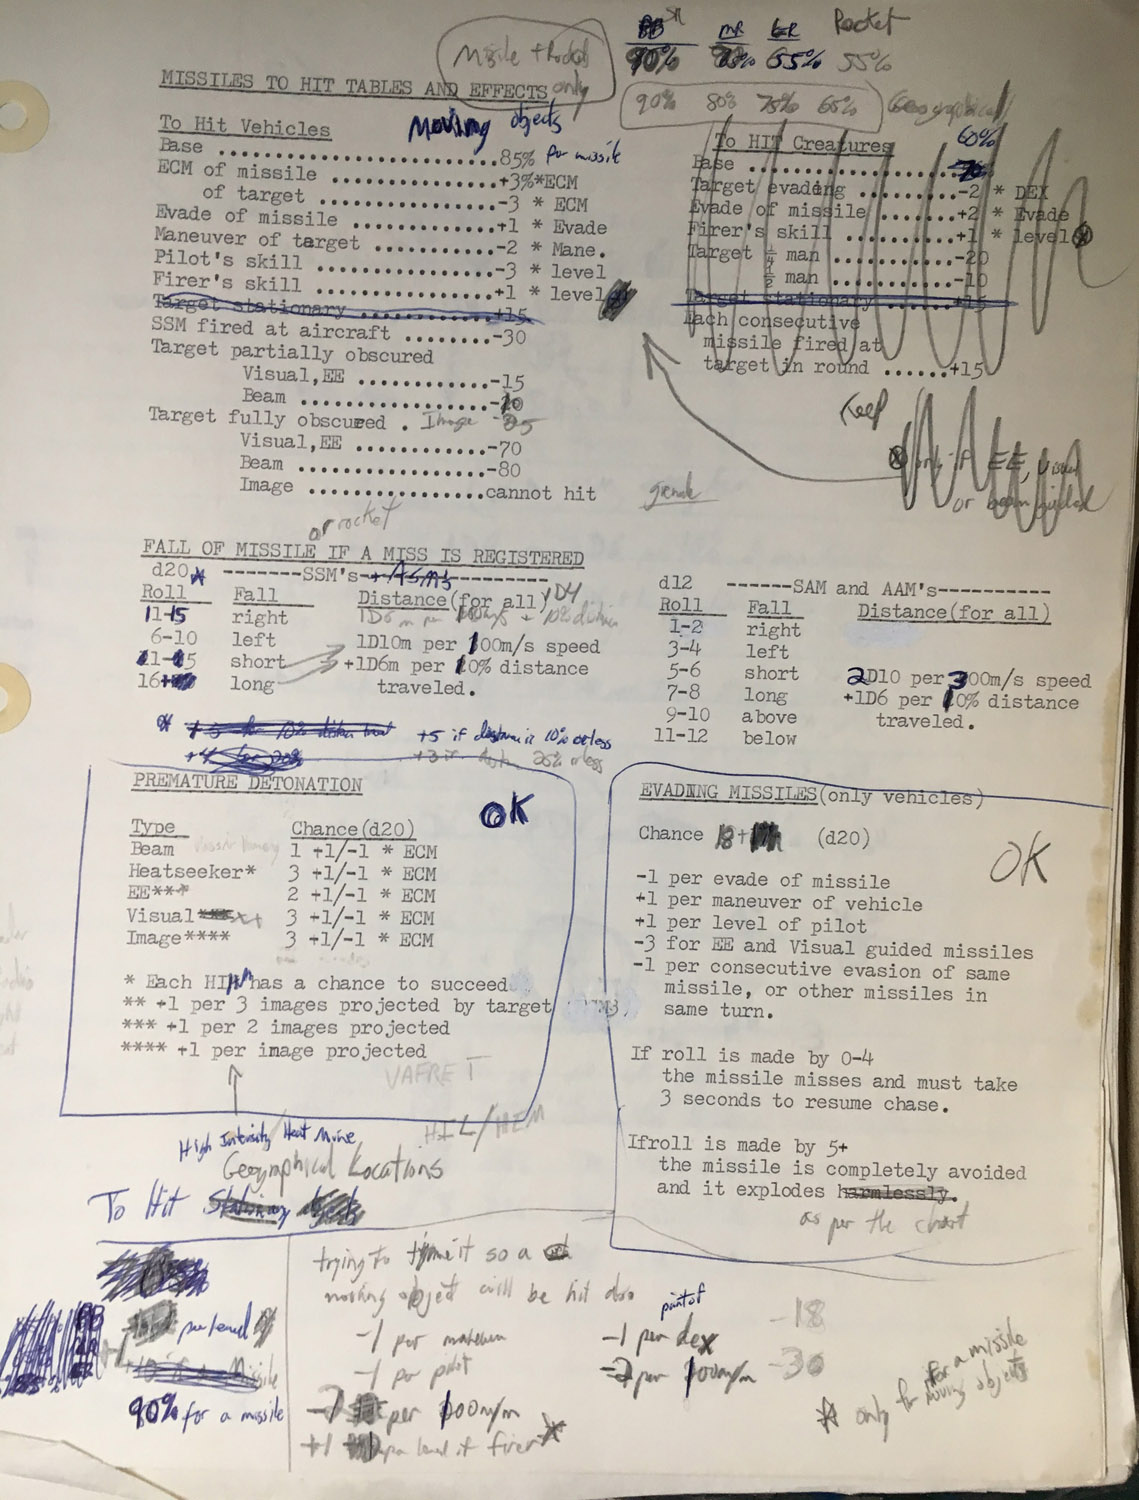 SR MR ER Rocket
90% 55% 55%
Missile + Rocket
only
90% 80% 75% 65% Geographical
MISSILES TO HIT TABLES AND EFFECTS
To Hit Vehicles Moving objects
Base ..................85% for missile
ECM of missile ..............+3%*ECM
of target ............-3 * ECM
Evade of missile ............+1 * Evade
Maneuver of target ..........-2 * Mane.
Pilot's skill ...............-3 * level
Firer's skill ...............+1 * level
Target stationary ...........+15
SSM fired at aircraft ........-30
Target partially obscured
Visual,EE ............-15
Beam .................
Target fully obscured . Image
Visual,EE ............-70
Beam .................-80
Image ................cannot hit
60%
To HIT Creatures
Base
Target evading ...........-2 * DEX
Evade of missile .........+2 * Evade
Firer's skill ............+1 * level
Target ¼ man .............-20
½ man .............-10
Target stationary ........+15
Each consecutive
missile fired at
target in round ......+15
Keep
only if EE, visual
or beam guided
or rocket
FALL OF MISSILE IF A MISS IS REGISTERED
d20 -------SSM's + ASM's----------
Roll Fall Distance(for all)
11-15 right
6-10 left 1D10m per 100m/s speed
short +1D6m per 10% distance
long traveled.
d12 ------SAM and AAM's----------
Roll Fall Distance(for all)
1-2 right
3-4 left
5-6 short 2D10 per 300m/s speed
7-8 long +1D6 per 10% distance
9-10 above traveled.
11-12 below
+5 if distance is 10% or less
+3 if dist 25% or less
PREMATURE DETONATION
OK
Type Chance(d20)
Beam 1 +1/-1 * ECM
Heatseeker* 3 +1/-1 * ECM
EE*** 2 +1/-1 * ECM
Visual 3 +1/-1 * ECM
Image**** 3 +1/-1 * ECM
* Each HIHM has a chance to succeed
** +1 per 3 images projected by target
*** +1 per 2 images projected
**** +1 per image projected
VAFRET
High Intensity Heat Mine
EVADING MISSILES(only vehicles)
Chance 18+ (d20)
OK
-1 per evade of missile
+1 per maneuver of vehicle
+1 per level of pilot
-3 for EE and Visual guided missiles
-1 per consecutive evasion of same
missile, or other missiles in
same turn.
If roll is made by 0-4
the missile misses and must take
3 seconds to resume chase.
Ifroll is made by 5+
the missile is completely avoided
and it explodes harmlessly.
as per the chart
Geographical Locations
To Hit Stationary
per level
90% for a missile
trying to time it so a
moving object will be hit
-1 per maneuv
-1 per pilot
per 100m/m
+1 per level of firer
point of
-1 per dex
-7 per 100m/m
-18
-36
for a missile
only for moving objects